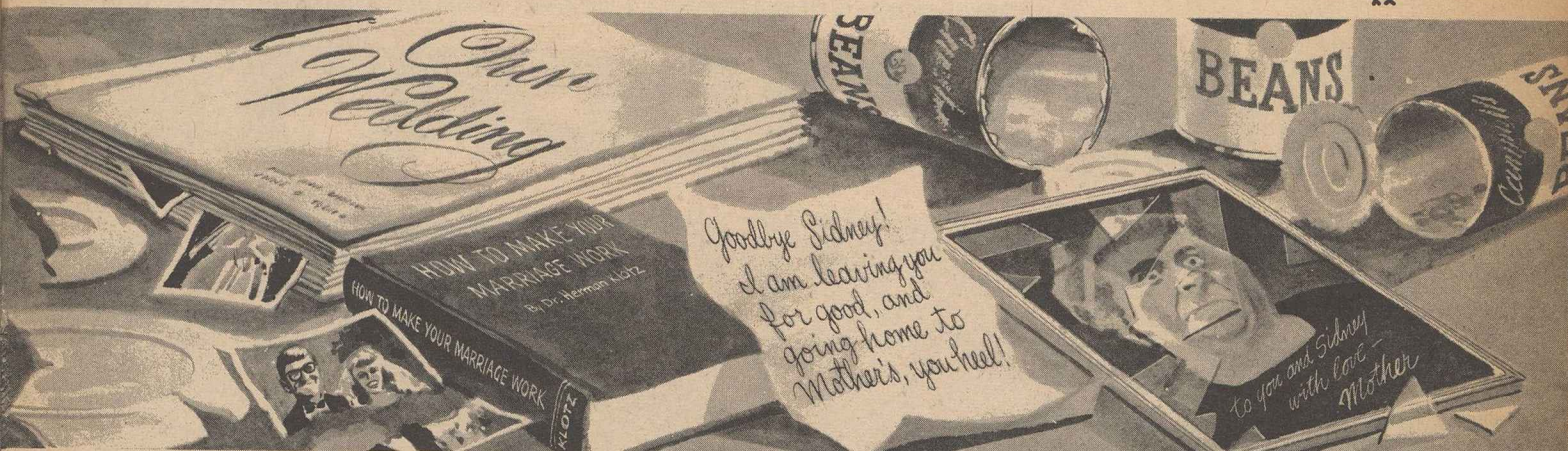 Our
Wedding
BEANS
BEANS
Campbell's
HOW TO MAKE YOUR
MARRIAGE WORK
By Dr. Herman Klotz
HOW TO MAKE YOUR MARRIAGE WORK
KLOTZ
Goodbye Sidney!
I am leaving you
for good, and
going home to
Mother's, you heel!
to you and Sidney
with love –
Mother